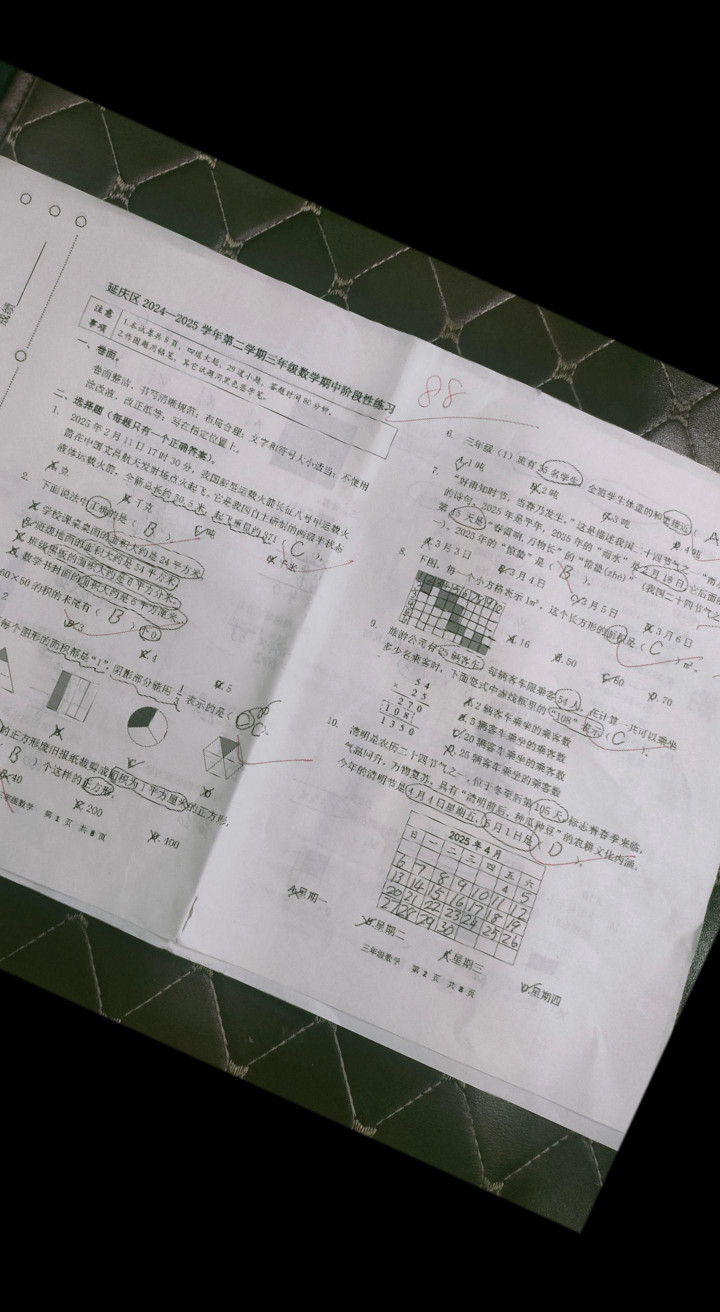 延庆区 2024—2025 学年第二学期三年级数学期中阶段性练习
注意
事项
1.本试卷共8页，四道大题，29道小题。答题时间80分钟。
2.作图题用铅笔，其它试题用黑色签字笔。
一、卷面。
卷面整洁、书写清晰规范；布局合理；文字和符号大小适当；不使用
涂改液、改正纸等；写在指定位置上。
二、选择题（每题只有一个正确答案）。
1. 2025 年 2 月 11 日 17 时 30 分，我国新型运载火箭长征八号甲运载火
箭在中国文昌航天发射场点火起飞。它是我国自主研制的两级半状态
液体运载火箭，全箭总长约 50.5 米，起飞重量约 371（ C ）。
A.克
B.千克
C.吨
D.千米
2. 下面说法中正确的是（ B ）。
A.学校课桌桌面的面积大约是 24 平方米。
B.班级地面的面积大约是 54 平方米。
C.班级黑板的面积大约是 6 平方分米。
D.数学书封面的面积大约是 6 平方厘米。
60×50 的积的末尾有（ B ）个 0。
2
B.3
C.4
D.5
每个图形的面积都是“1”，阴影部分能用 表示的是（
的正方形废旧报纸裁剪成面积为 1 平方厘米的正方形，
（ B ）个这样的正方形。
40
C.200
D.400
三年级数学 第 1 页 共 8 页
88
6. 三年级（1）班有 35 名学生，全班学生体重的和最接近（ A
A.1 吨
B.2 吨
C.3 吨
D.4 吨
7. “好雨知时节，当春乃发生。”这是描述我国二十四节气之一“雨
的诗句。2025 年是平年，2025 年的“雨水”是 2 月 18 日，它后面的
第 15 天是“春雷响，万物长”的“惊蛰(zhé)”（我国二十四节气之
一）。2025 年的“惊蛰”是（ B ）。
A.3 月 3 日
B.3 月 4 日
C.3 月 5 日
D.3 月 6 日
8. 下图，每一个小方格表示 1m²，这个长方形的面积是（ C ）m²。
A.16
B.50
C.60
D.70
9. 旅游公司有 25 辆客车，每辆客车限乘客 54 人。在计算一共可以乘坐
多少名乘客时，下面竖式中虚线框里的“108”表示（ C ）。
5 4
× 2 5
2 7 0
1 0 8
1 3 5 0
A.2 辆客车乘坐的乘客数
B.5 辆客车乘坐的乘客数
C.20 辆客车乘坐的乘客数
D.25 辆客车乘坐的乘客数
10. 清明是农历二十四节气之一，位于冬至后第 105 天，标志着春季来临，
气温回升，万物复苏，具有“清明前后，种瓜种豆”的农耕文化内涵。
今年的清明节是 4 月 4 日星期五，5 月 1 日是（ D ）。
2025 年 4 月
日 一 二 三 四 五 六
4 5
6 7 8 9 10 11 12
13 14 15 16 17 18 19
20 21 22 23 24 25 26
27 28 29 30
A.星期一
B.星期二
C.星期三
D.星期四
三年级数学 第 2 页 共 8 页